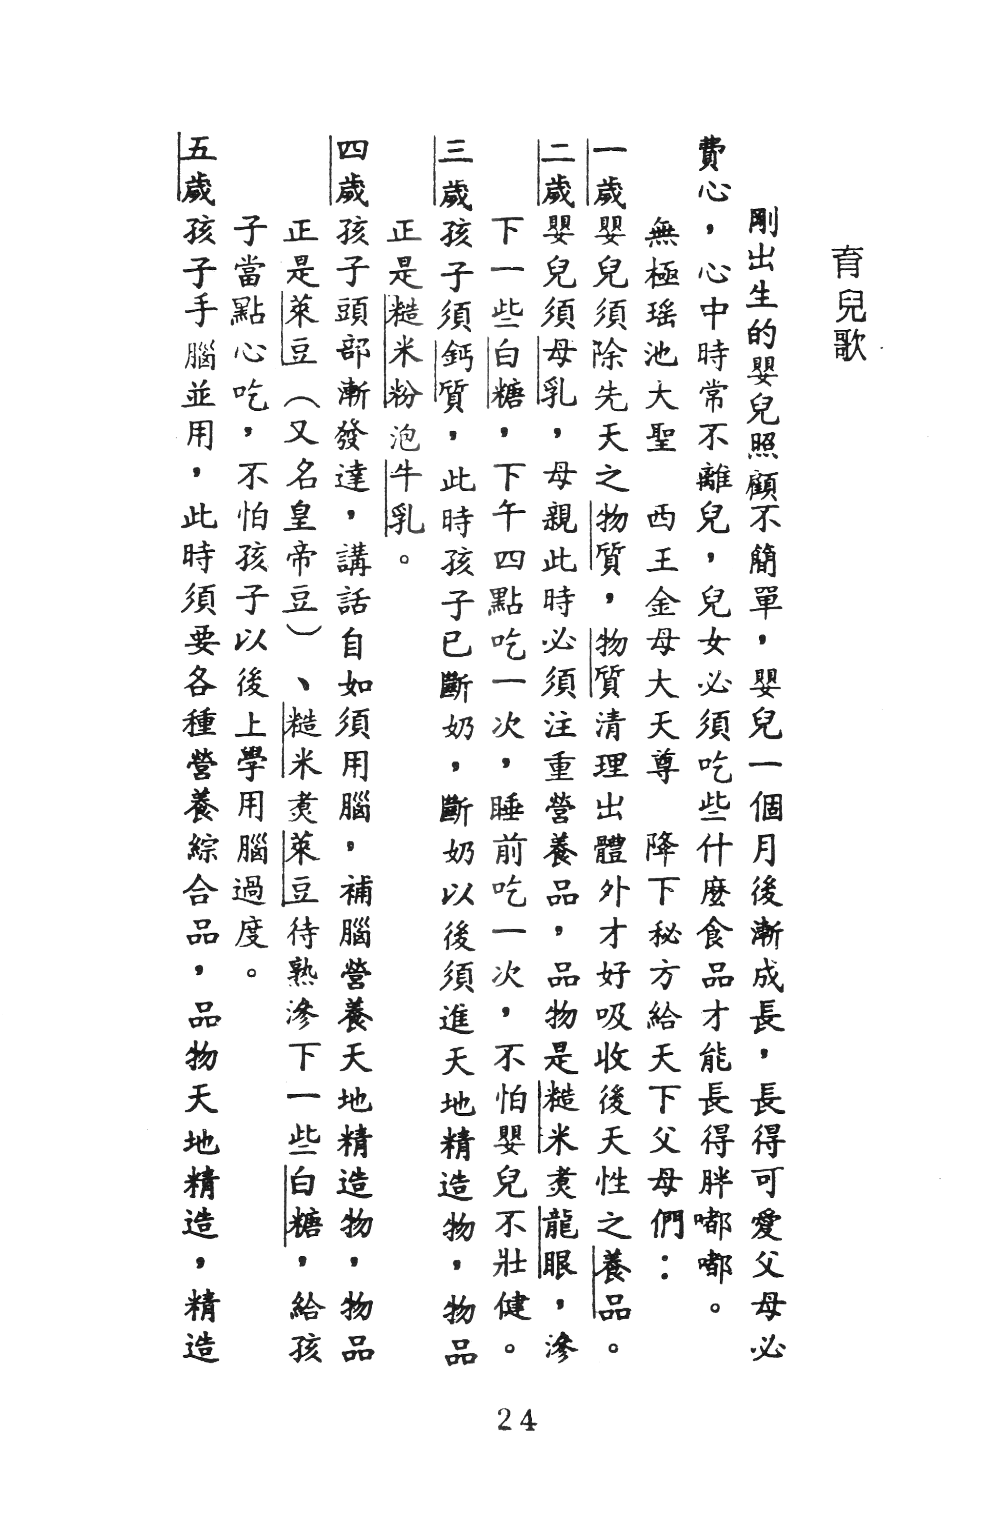 育兒歌
剛出生的嬰兒照顧不簡單，嬰兒一個月後漸成長，長得可愛父母必
費心，心中時常不離兒，兒女必須吃些什麼食品才能長得胖嘟嘟。
無極瑤池大聖　西王金母大天尊　降下秘方給天下父母們：
一歲嬰兒須除先天之物質，物質清理出體外才好吸收後天性之養品。
二歲嬰兒須母乳，母親此時必須注重營養品，品物是糙米煑龍眼，滲
下一些白糖，下午四點吃一次，睡前吃一次，不怕嬰兒不壯健。
三歲孩子須鈣質，此時孩子已斷奶，斷奶以後須進天地精造物，物品
正是糙米粉泡牛乳。
四歲孩子頭部漸發達，講話自如須用腦，補腦營養天地精造物，物品
正是萊豆（又名皇帝豆）、糙米煑萊豆待熟滲下一些白糖，給孩
子當點心吃，不怕孩子以後上學用腦過度。
五歲孩子手腦並用，此時須要各種營養綜合品，品物天地精造，精造
24